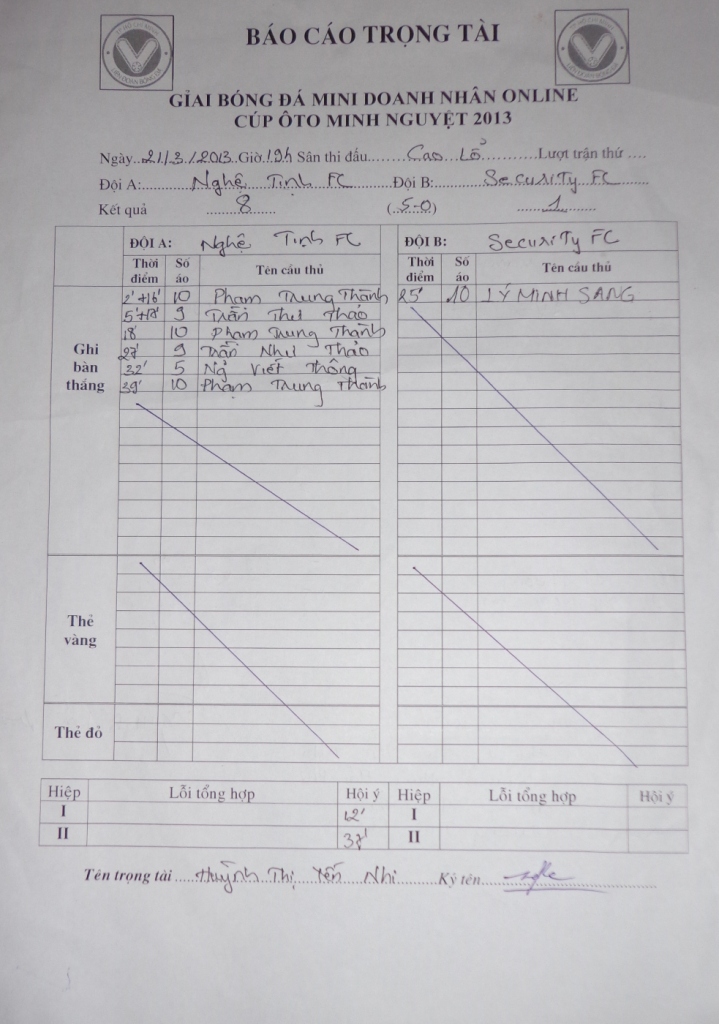 BÁO CÁO TRỌNG TÀI
GIẢI BÓNG ĐÁ MINI DOANH NHÂN ONLINE
CÚP ÔTO MINH NGUYỆT 2013
Ngày..21/3/2013..Giờ.19h Sân thi đấu.......Cao Lỗ...........Lượt trận thứ ....
Đội A:.........Nghệ Tịnh FC.........Đội B:............Security FC.......
Kết quả ........8....... (..5-0..) ........1........
ĐỘI A: Nghệ Tịnh FC ĐỘI B: Security FC
Thời điểm Số áo Tên cầu thủ Thời điểm Số áo Tên cầu thủ
Ghi bàn thắng
2'+16' 10 Phạm Trung Thành 25' 10 LÝ MINH SANG
5'+17' 9 Trần Như Thảo
18' 10 Phạm Trung Thành
27' 9 Trần Như Thảo
32' 5 Ng Viết Thông
39' 10 Phạm Trung Thành
Thẻ vàng
Thẻ đỏ
Hiệp Lỗi tổng hợp Hội ý Hiệp Lỗi tổng hợp Hội ý
I 12' I
II 37' II
Tên trọng tài .....Huỳnh Thị Yến Nhi..........Ký tên